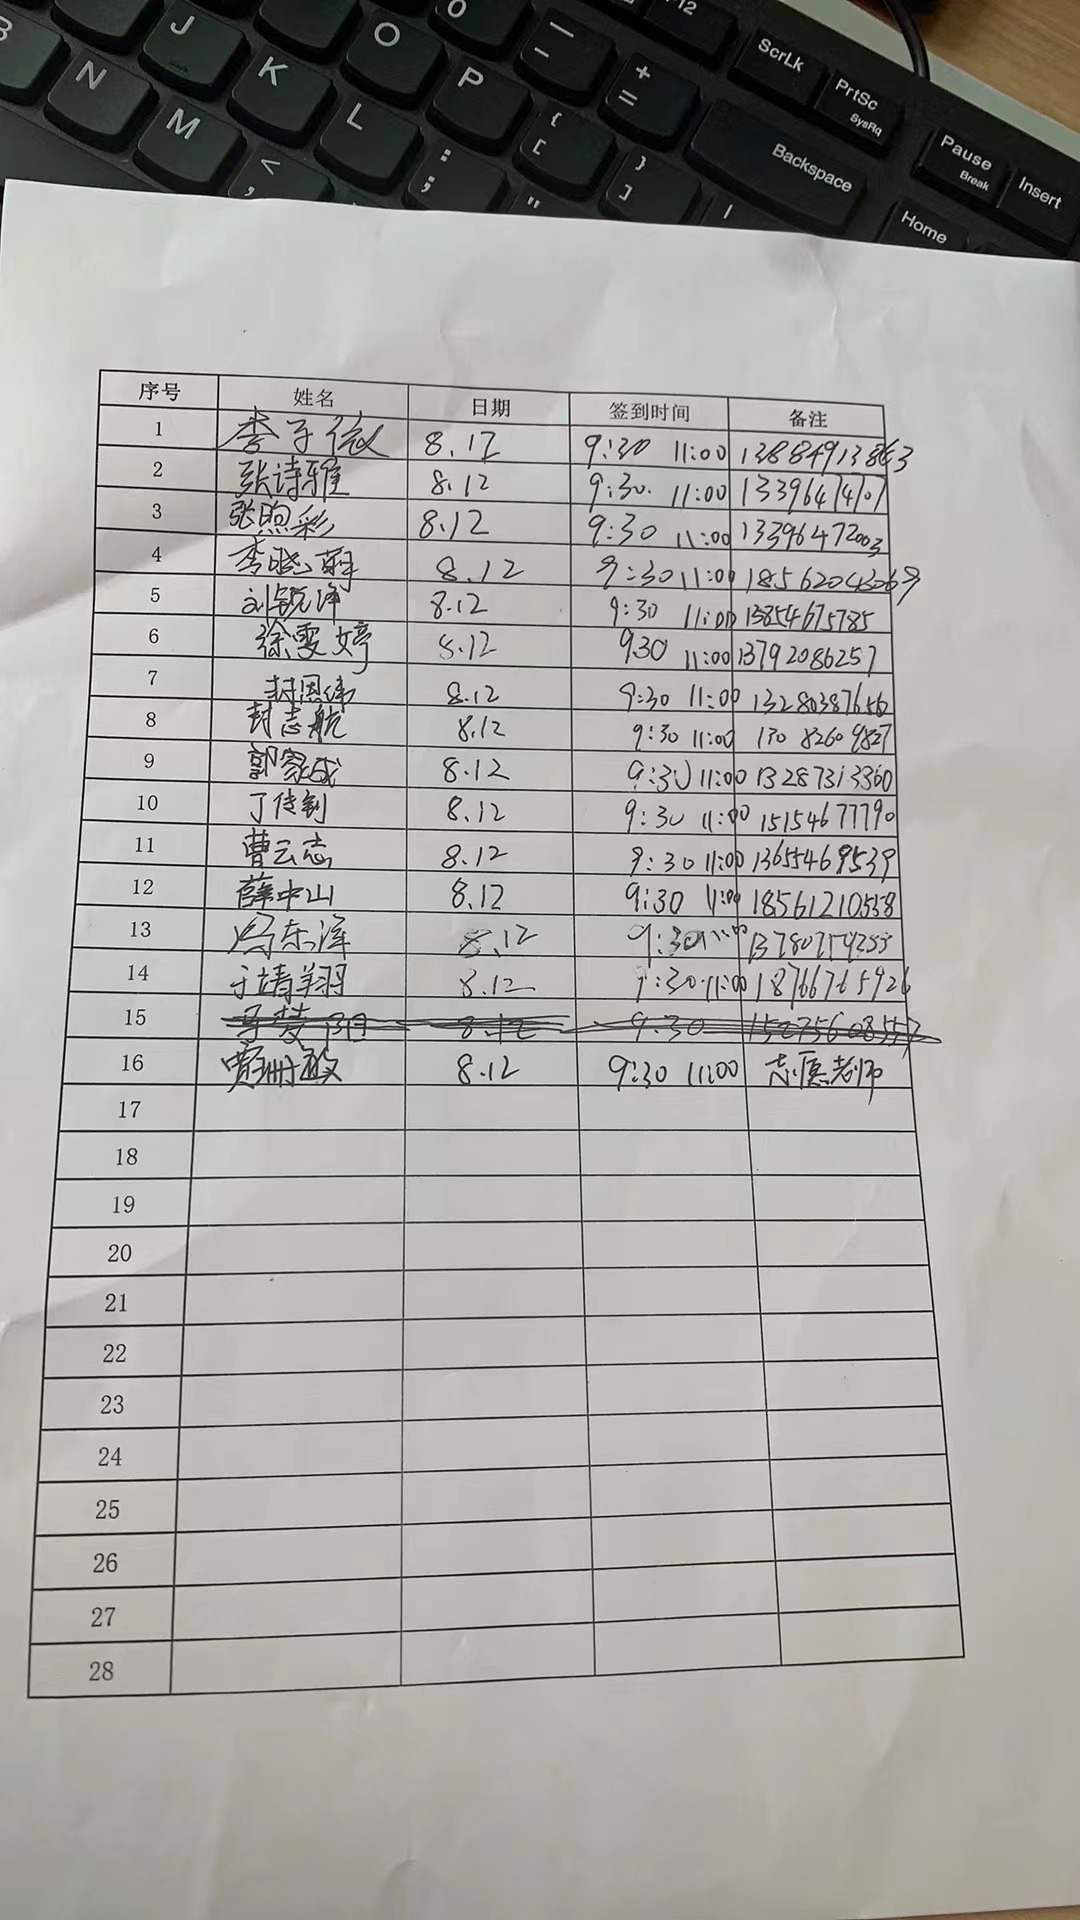 J
O
0
F12
ScrLk
PrtSc
SysRq
Pause
Break
Insert
N
K
P
Backspace
Home
M
L
序号 姓名 日期 签到时间 备注
1 李子微 8.12 9:30 11:00
2 张诗雅 8.12 9:30. 11:00
3 张煦彩 8.12 9:30 11:00 13396472003
4 李晓萌 8.12 9:30 11:00 18562043069
5 刘锐泽 8.12 9:30 11:00 13854675785
6 徐雯婷 8.12 930 11:00 13792086257
7 封恩伟 8.12 9:30 11:00 13280387656
8 封志航 8.12 9:30 11:00 130 8260 9827
9 郭家成 8.12 9:30 11:00 13287313360
10 8.12 9:30 11:00 15154677790
11 曹云志 8.12 9:30 11:00 13655469539
12 薛中山 8.12 9:30 11:00 18561210558
13 冯东泽 8.12 9:30
14 于靖翔 8.12 9:30 11:00 18766765926
15 8.12 9:30
16 贾珊敏 8.12 9:30 11:00 志愿老师
17
18
19
20
21
22
23
24
25
26
27
28